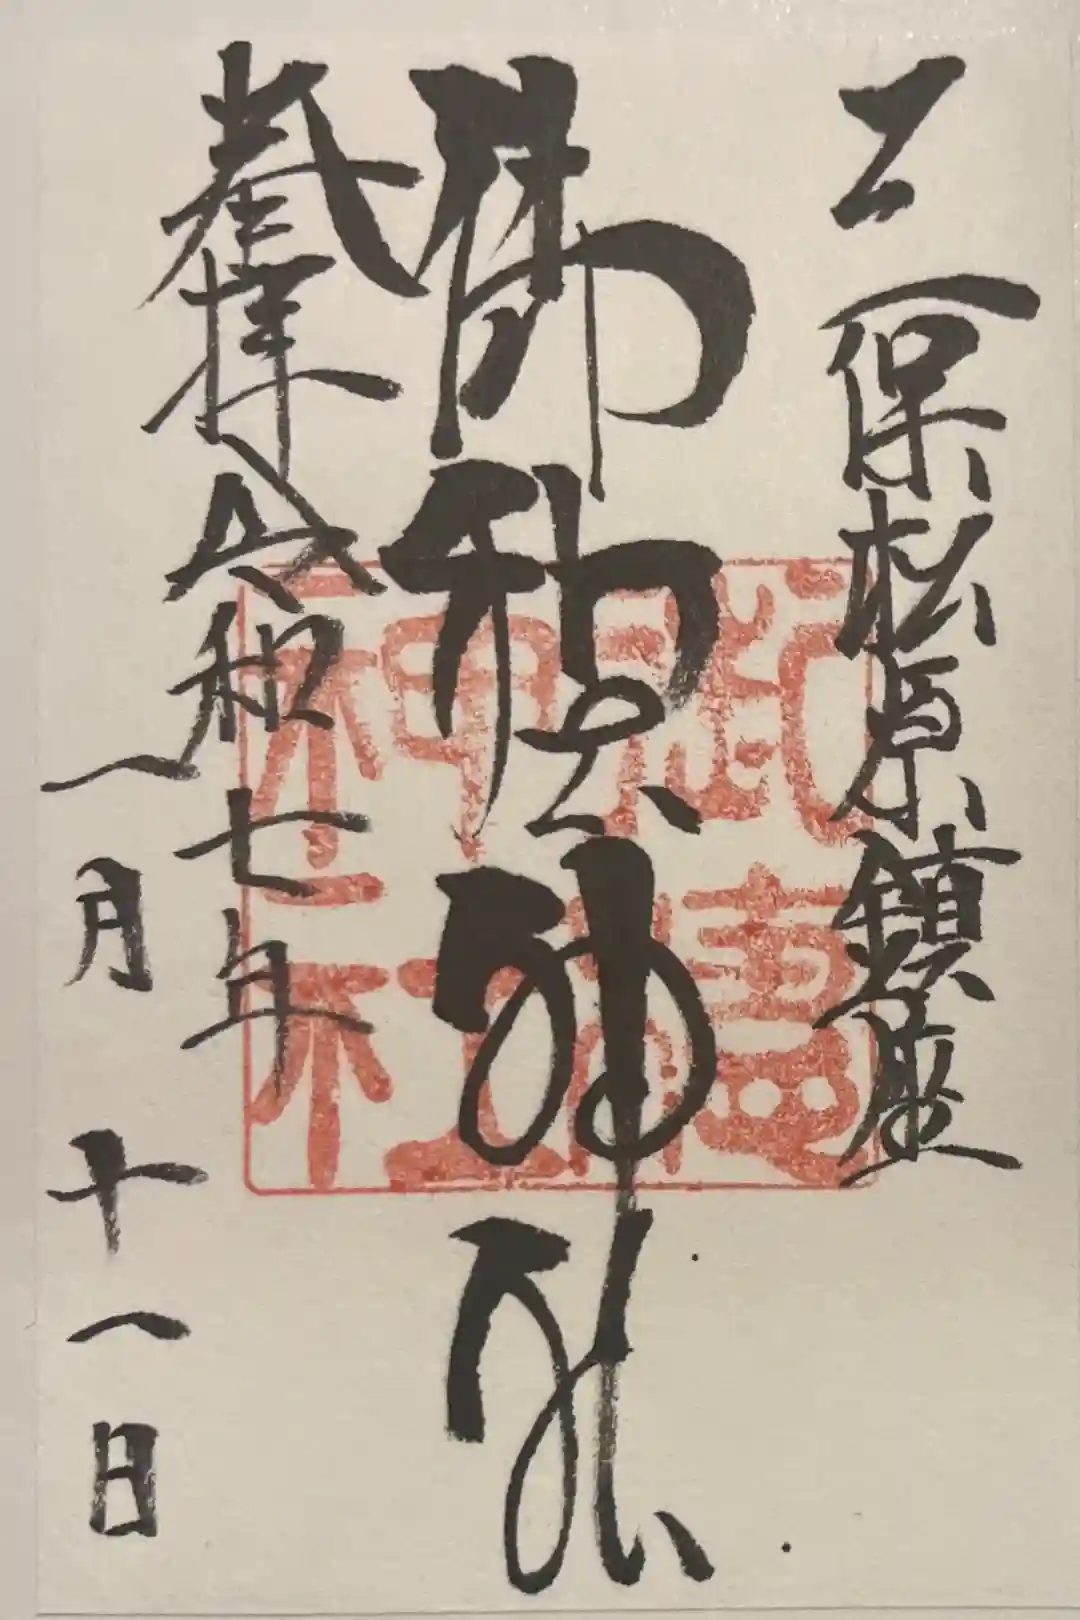 三保松原鎮座
御穂神社
奉拝 令和七年
一月十一日
御穂
神社